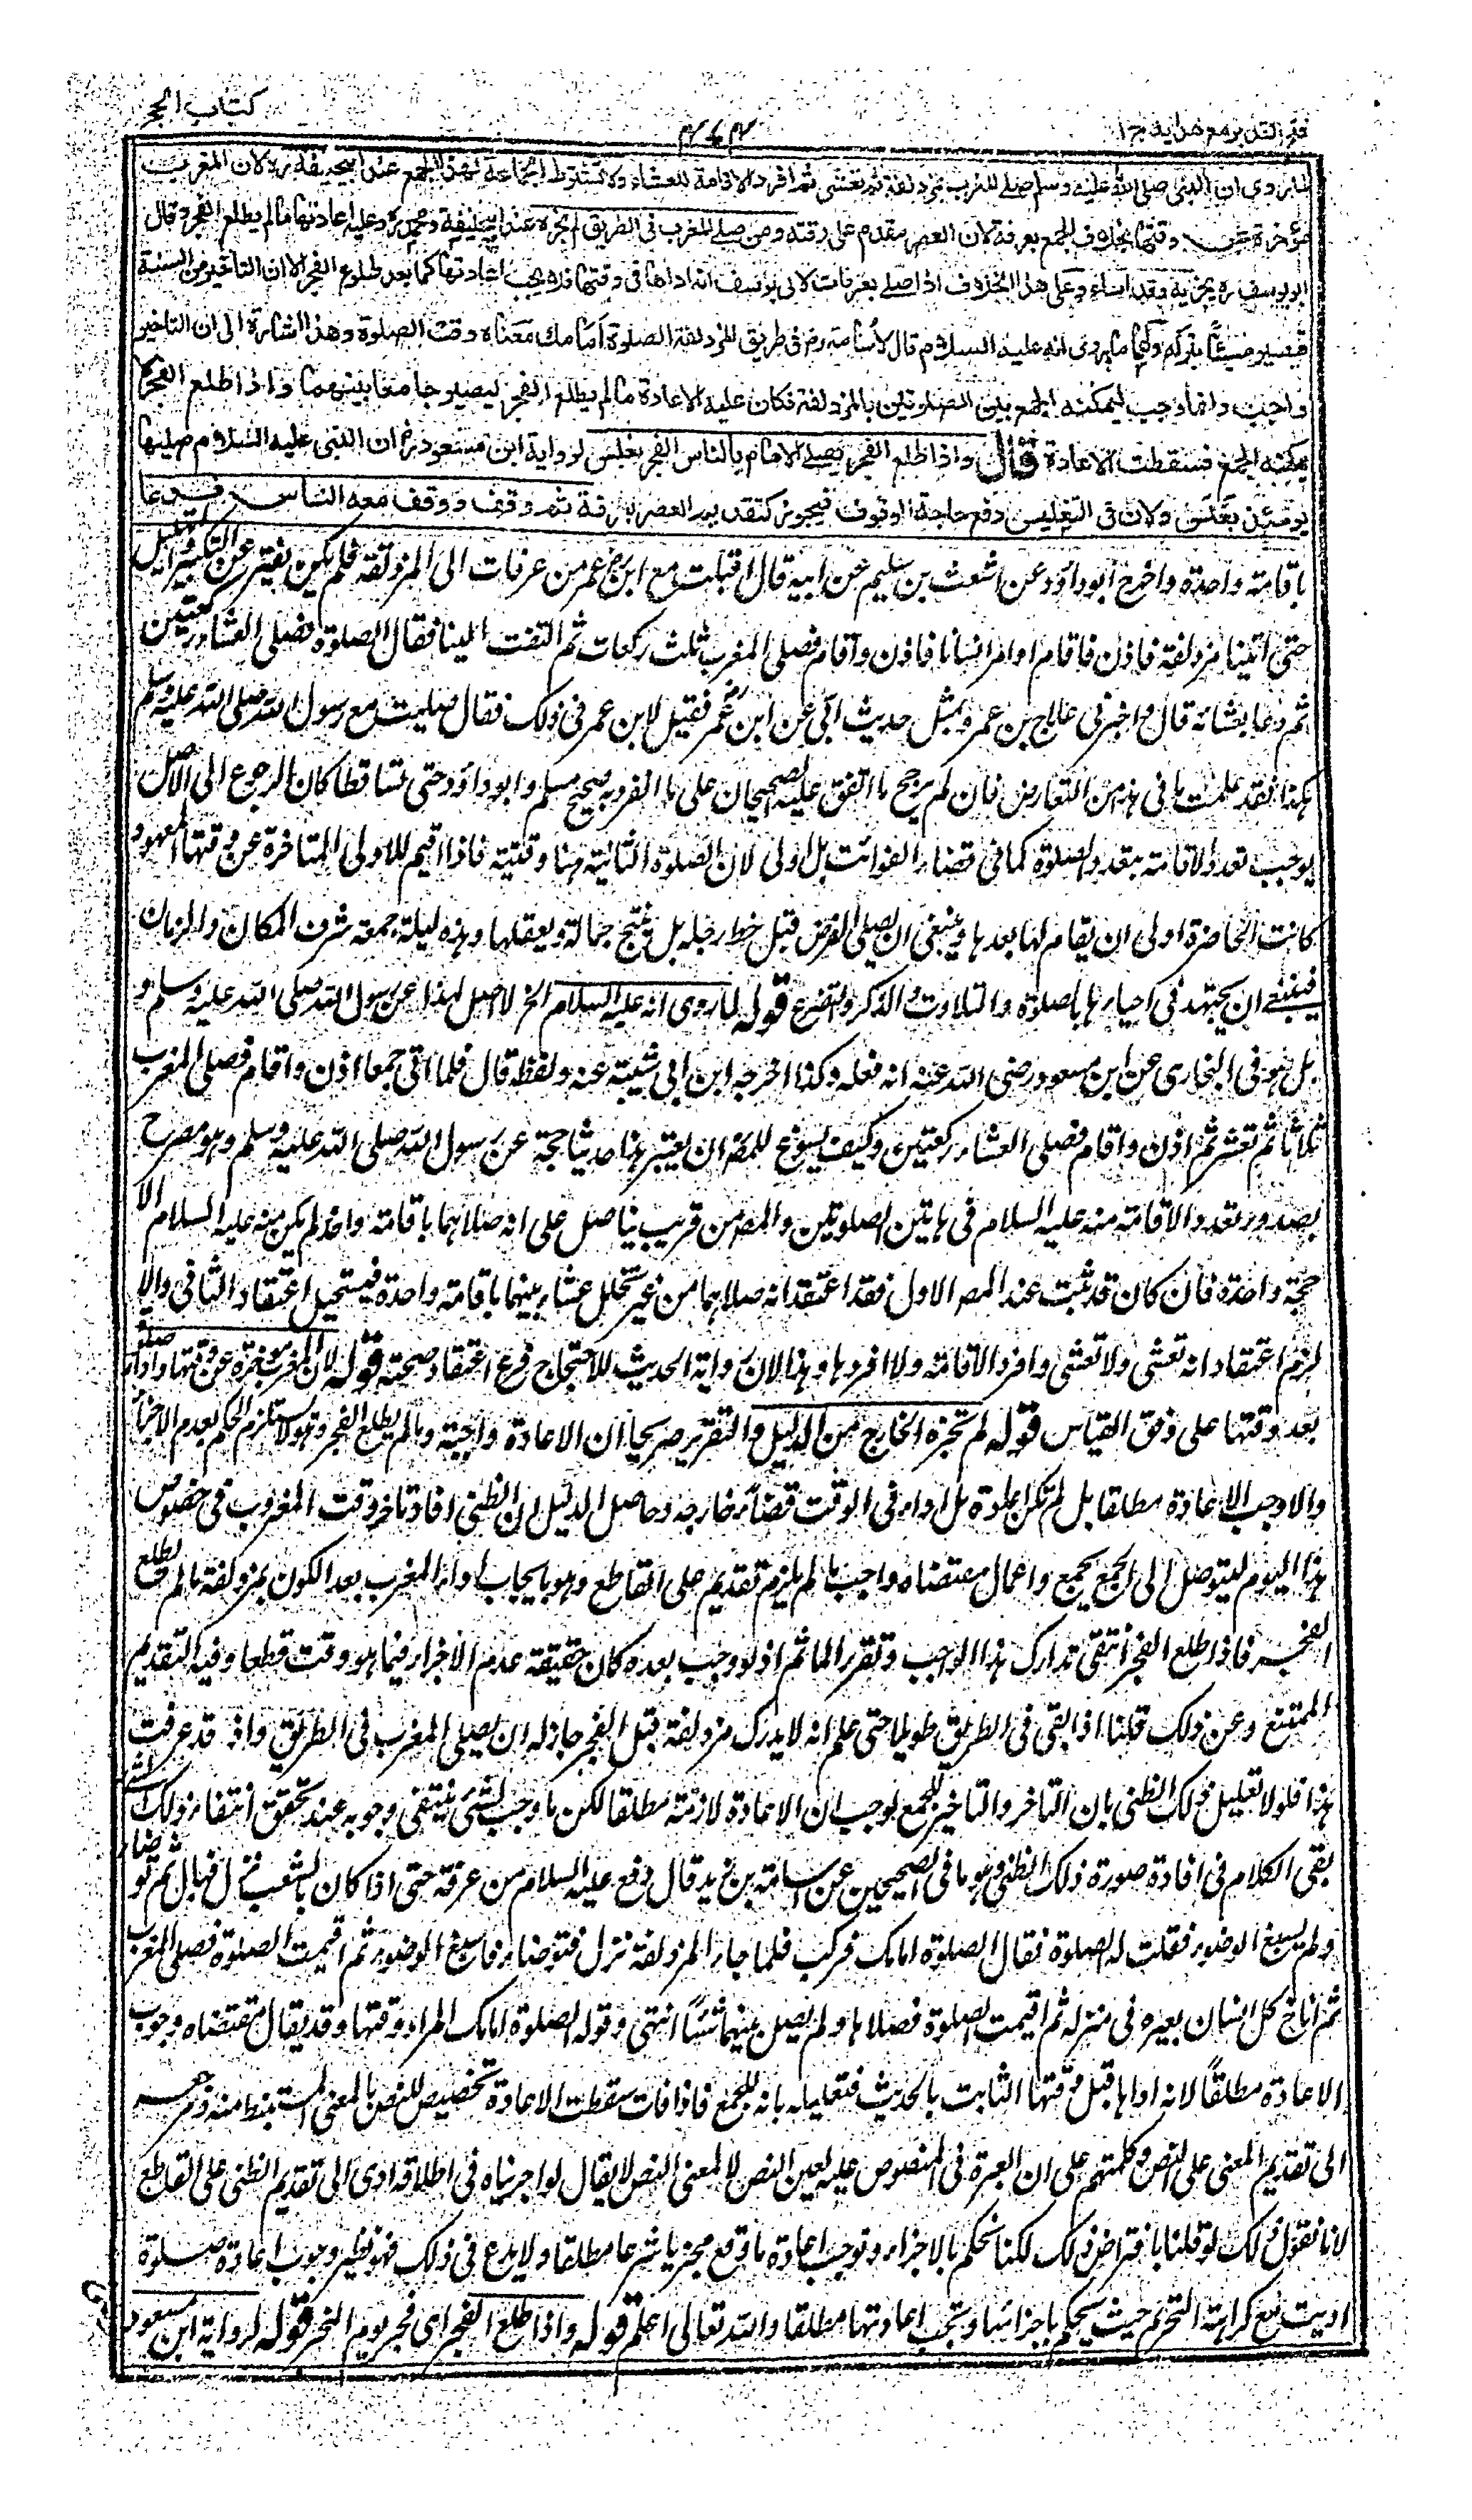 فتح القدير مع هدايه ج ١
٣٧٣
كتاب الحج
لما روى ان النبى صلى الله عليه وسلم صلى المغرب بمزدلفة ثم تعشى ثم افرد الاقامة للعشاء ولا تشترط الجماعة لهذا الجمع عند ابيحنيفة ره لان المغرب
مؤخرة عن وقتها بخلاف الجمع بعرفة لان العصر مقدم على وقته ومن صلى المغرب فى الطريق لم تجزه عند ابيحنيفة ومحمد ره وعليه اعادتها مالم يطلع الفجر وقال
ابو يوسف ره يجزيه وقد اساء وعلى هذا الخلاف اذا صلى بعرفات لابى يوسف انه اداها فى وقتها فلا يجب اعادتها كما بعد طلوع الفجر الا ان التاخير من السنة
فيصير مسيئا بتركه ولهما ما روى انه عليه السلام قال لأسامة رض فى طريق المزدلفة الصلوة أمامك معناه وقت الصلوة وهذا اشارة الى ان التاخير
واجب وانما وجب ليمكنه الجمع بين الصلوتين بالمزدلفة فكان عليه الاعادة مالم يطلع الفجر ليصير جامعا بينهما واذا طلع الفجر لا
يمكنه الجمع فسقطت الاعادة قال واذا طلع الفجر يصلى الامام بالناس الفجر بغلس لرواية ابن مسعود رض ان النبى عليه السلام صليها
يومئذ بغلس ولان فى التغليس دفع حاجة الوقوف فيجوز كتقديم العصر بعرفة ثم وقف ووقف معه الناس فدعا
باقامة واحدة واخرج ابو داؤد عن اشعث بن سليم عن ابيه قال اقبلت مع ابن عمر من عرفات الى المزدلفة فلم يكن يفتر عن التكبير والتهليل
حتى اتينا مزدلفة فاذن فاقام او امر انسانا فاذن واقام فصلى المغرب ثلث ركعات ثم التفت الينا فقال الصلوة فصلى العشاء ركعتين
ثم دعا بعشائه قال واخبرنى علاج بن عمرو بمثل حديث ابى عن ابن عمر فقيل لابن عمر فى ذلك فقال صليت مع رسول الله صلى الله عليه وسلم
هكذا فقد علمت ما فى هذا من التعارض فان لم يرجح ما اتفق عليه الصحيحان على ما انفرد به صحيح مسلم وابو داؤد حتى تساقطا كان الرجوع الى الاصل
يوجب تعدد الاقامة بتعدد الصلوة كما فى قضاء الفوائت بل اولى لان الصلوة الثانية هنا وقتية فاذا اقيم للاولى المتاخرة عن وقتها المعهود
كانت الحاضرة اولى ان يقام لها بعدها وينبغى ان يصلى الفرض قبل حط رحله بل ينيخ جماله ويعقلها وهذه ليلة جمعت شرف المكان والزمان
فينبغى ان يجتهد فى احيائها بالصلوة والتلاوت والذكر والتضرع قوله لما روى انه عليه السلام الخ لا اصل لهذا عن رسول الله صلى الله عليه وسلم و
بل هو فى البخارى عن ابن مسعود رضى الله عنه انه فعله وكذا اخرجه ابن ابى شيبة عنه ولفظه قال فلما اتى جمعا اذن واقام فصلى المغرب
ثلاثا ثم تعشى ثم اذن واقام فصلى العشاء ركعتين وكيف يسوغ للمصر ان يعتبر هذا حديثا حجة عن رسول الله صلى الله عليه وسلم وهو مصرح
بصدور تعدد الاقامة منه عليه السلام فى هاتين الصلوتين والمصر من قريب يناضل على انه صلاهما باقامة واحدة ولم يكن منه عليه السلام الا
حجة واحدة فان كان قد ثبت عند المصر الاول فقد اعتقد انه صلاهما من غير تخلل عشاء بينهما باقامة واحدة فيستحيل اعتقاد الثانى والا
لزم اعتقاد انه تعشى ولا تعشى وافرد الاقامة ولا افردها وهذا لان رواية الحديث للاحتجاج فرع اعتقاد صحته قوله لان المغرب مؤخرة عن وقتها واداء صلوة
بعد وقتها على وفق القياس قوله لم تجزه الخارج من الدليل والتقرير صريحا ان الاعادة واجبة ما لم يطلع الفجر وهو لا يستلزم الحكم بعدم الاجزاء
والا وجب الاعادة مطلقا بل لم تكن اعادة بل اداء فى الوقت قضاء خارجه وحاصل الدليل ان الظنى افاد تاخر وقت المغرب فى خصوص
هذا اليوم ليتوصل الى الجمع بجمع واعمال مقتضاه واجب ما لم يلزم تقديم على القاطع وهو بايجاب اداء المغرب بعد الكون بمزدلفة ما لم يطلع
الفجر فاذا طلع الفجر انتفى تدارك هذا الواجب وتقرر الماثم اذ لو وجب بعده كان حقيقة عدم الاجزاء فيما هو وقت قطعا وفيه التقديم
الممتنع وعن ذلك قلنا اذا بقى فى الطريق طويلا حتى علم انه لا يدرك مزدلفة قبل الفجر جاز له ان يصلى المغرب فى الطريق واذ قد عرفت
هذا فلولا تعليل ذلك الظنى بان التاخر والتاخير للجمع لوجب ان الاعادة لازمة مطلقا لكن ما وجب لشئ ينتفى وجوبه عند تحقق انتفاء ذلك الشئ
بقى الكلام فى افادة صورة ذلك الظنى وهو ما فى الصحيحين عن اسامة بن زيد قال دفع عليه السلام من عرفة حتى اذا كان بالشعب نزل فبال ثم توضأ
ولم يسبغ الوضوء فقلت له الصلوة فقال الصلوة امامك فركب فلما جاء المزدلفة نزل فتوضا فاسبغ الوضوء ثم اقيمت الصلوة فصلى المغرب
ثم اناخ كل انسان بعيره فى منزله ثم اقيمت الصلوة فصلاها ولم يصل بينهما شيئا انتهى وقوله الصلوة امامك المراد وقتها وقد يقال مقتضاه وجوب
الاعادة مطلقا لانه اداها قبل وقتها الثابت بالحديث فتعليله بانه للجمع فاذا فات سقطت الاعادة تخصيص للنص بالمعنى المستنبط منه ومرجعه
الى تقديم المعنى على النص وكلمتهم على ان العبرة فى المنصوص عليه لعين النص لا لمعنى النص لا يقال لو اجريناه فى اطلاقه ادى الى تقديم الظنى على القاطع
لانا نقول ذلك لو قلنا بافتراض ذلك لكنا نحكم بالاجزاء ونوجب اعادة ما وقع مجزيا شرعا مطلقا ولا بدع فى ذلك فهو نظير وجوب اعادة صلوة
اديت مع كراهة التحريم حيث يحكم باجزائها وتجب اعادتها مطلقا والله تعالى اعلم قوله واذا طلع الفجر اى فجر يوم النحر قوله لرواية ابن مسعود